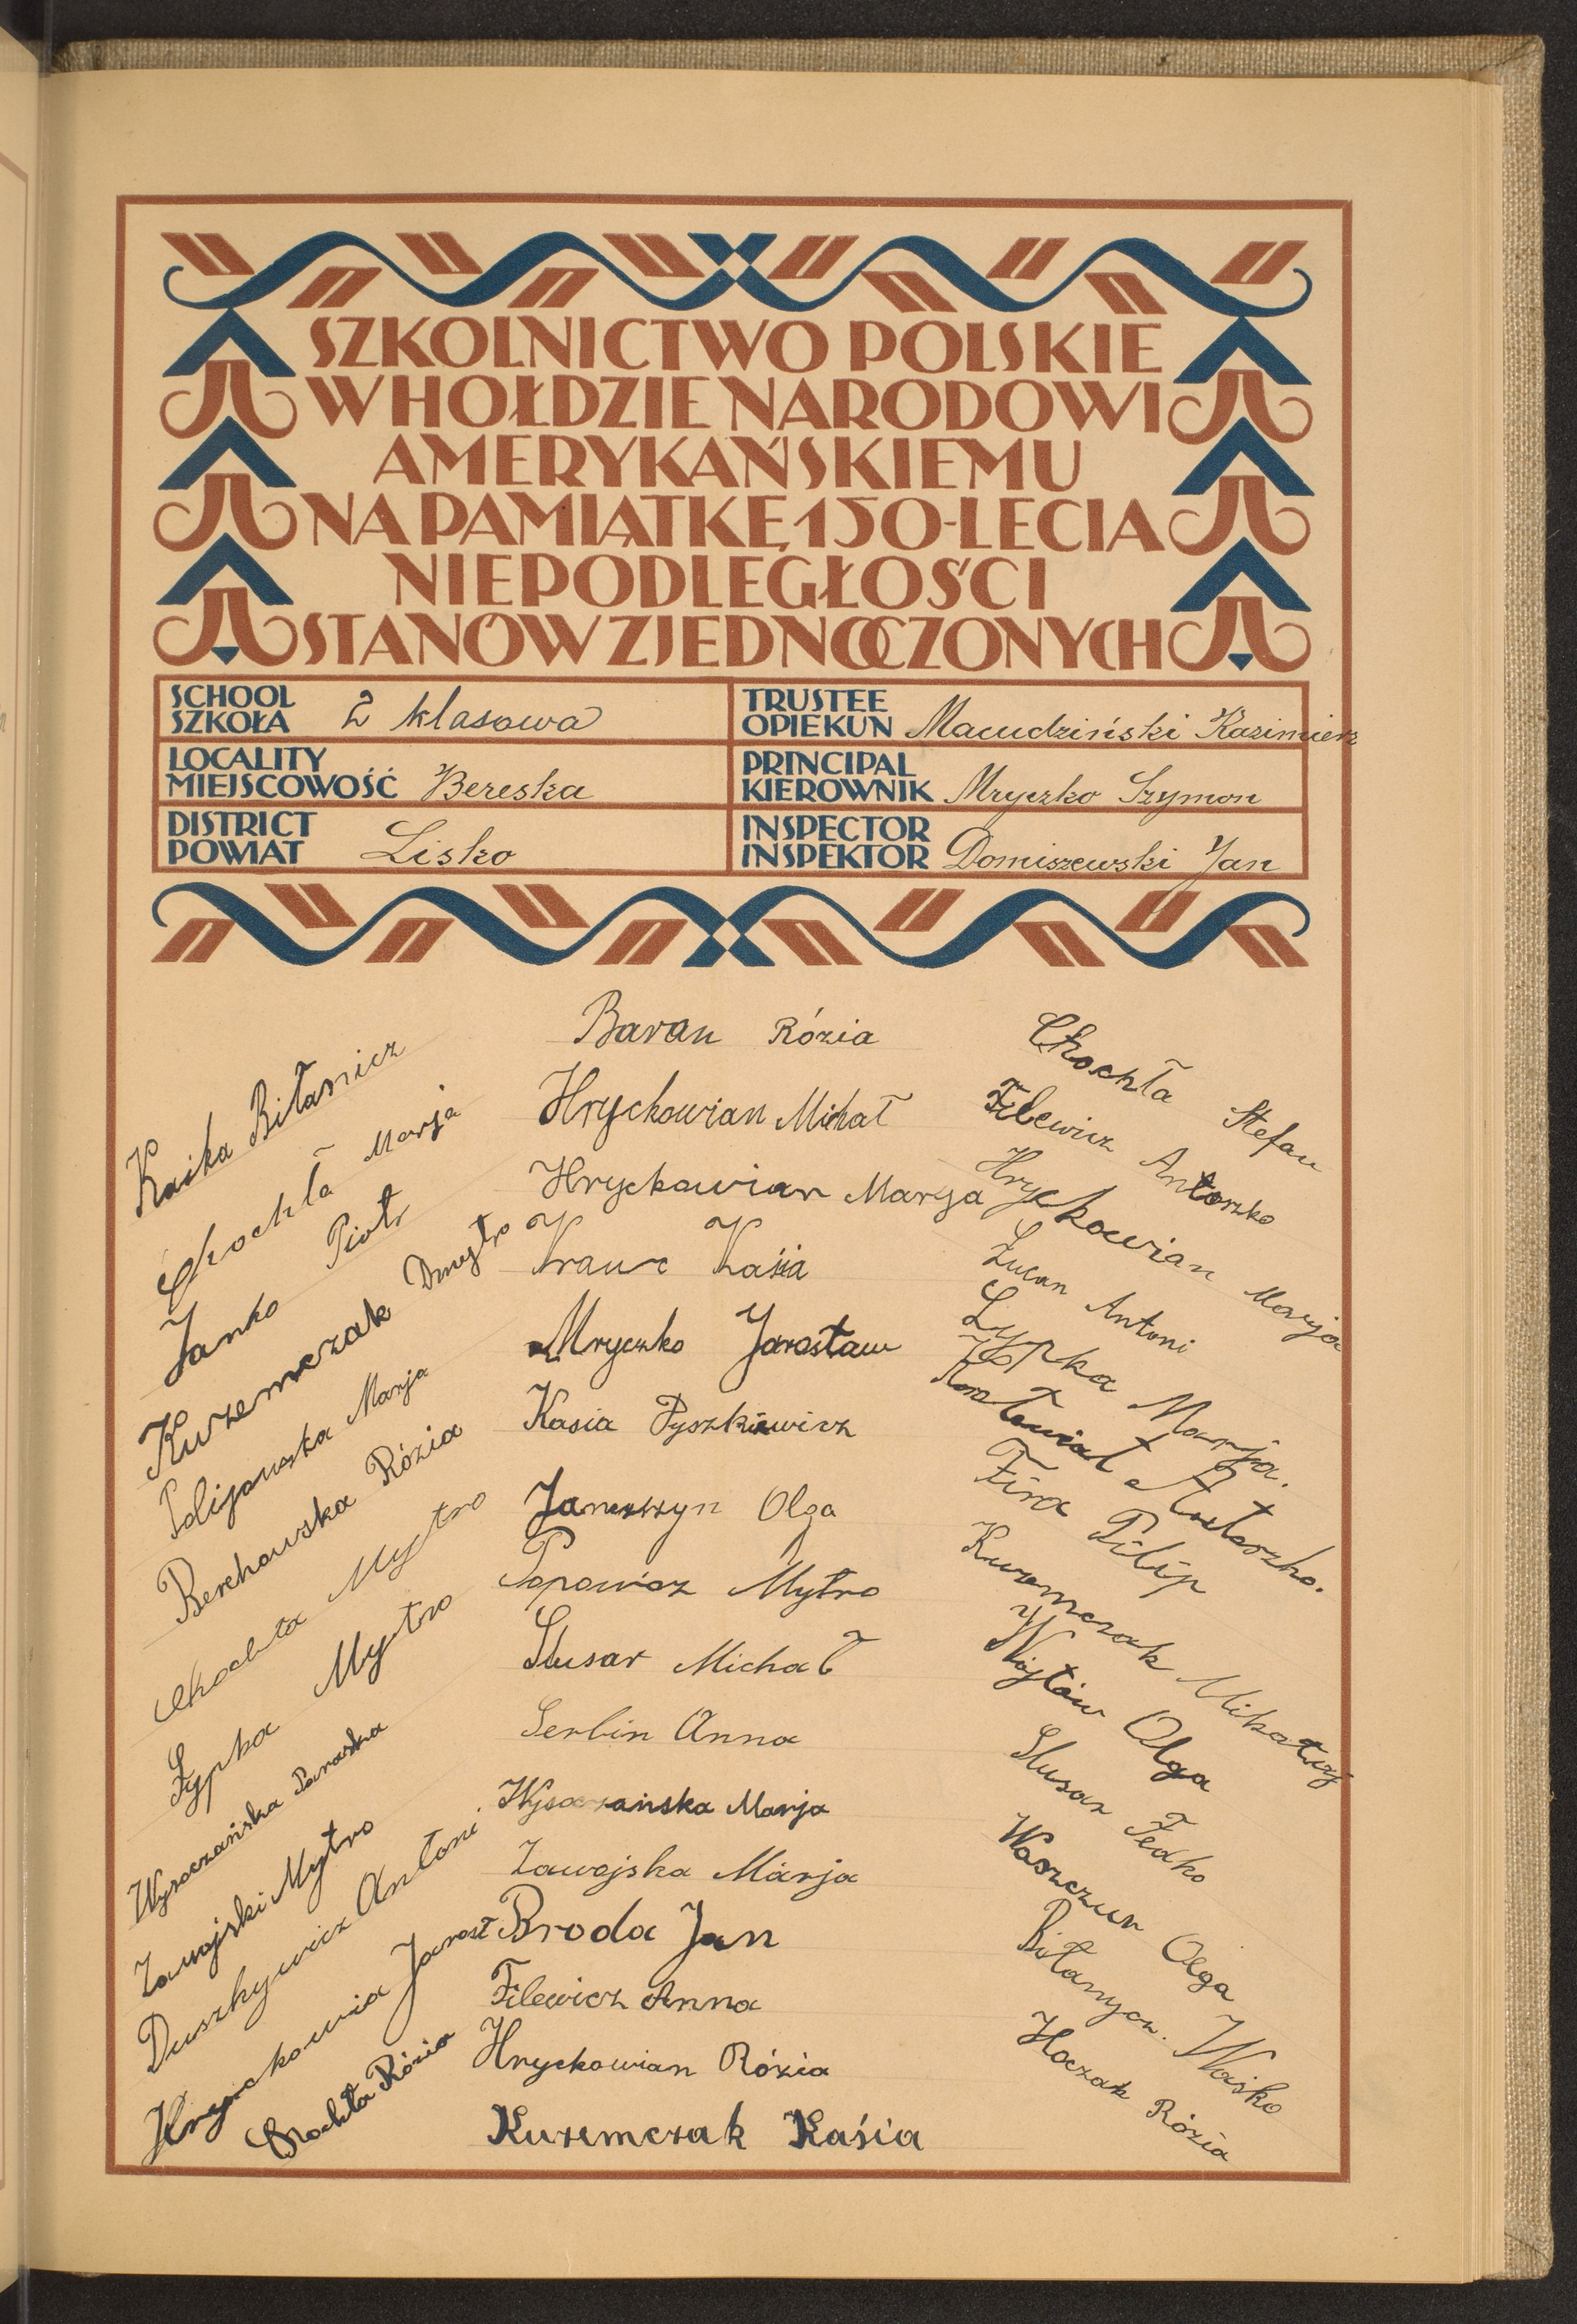 SZKOLNICTWO POLSKIE
W HOŁDZIE NARODOWI
AMERYKAŃSKIEMU
NA PAMIĄTKĘ 150-LECIA
NIEPODLEGŁOŚCI
STANÓW ZJEDNOCZONYCH
SCHOOL
SZKOŁA 2 klasowa
TRUSTEE
OPIEKUN Macudziński Kazimierz
LOCALITY
MIEJSCOWOŚĆ Bereska
PRINCIPAL
KIEROWNIK Mryczko Szymon
DISTRICT
POWIAT Lisko
INSPECTOR
INSPEKTOR Domiszewski Jan
Kaika Biłanicz
Chochła Marja
Janko Piotr
Kuzemczak Dmytro
Marja
Berehowska Rózia
Chochła Mytro
Łypka Mytro
Wysoczańska Paraska
Zawojski Mytro
Duszkywicz Antoni
Hryckowia Jarosł
Chochła Rózia
Baran Rózia
Hryckowian Michał
Hryckowian Marya
Krawc Kasia
Mryczko Jarosław
Kasia Pyszkiewicz
Janeszyn Olga
Popowicz Mytro
Slusar Michał
Serbin Anna
Wysoczańska Marja
Zawojska Marja
Broda Jan
Filewicz Anna
Hryckowian Rózia
Kuzemczak Kaśia
Chochła Stefan
Filewicz Antoszko
Hryckowian Marja
Łucan Antoni
Łypka Marja.
Antoszko.
Fira Pilip
Kuzemczak Mikołaj
Wójtów Olga
Slusar Fedko
Waszczur Olga
Biłanycz. Waśko
Hoczak Rózia